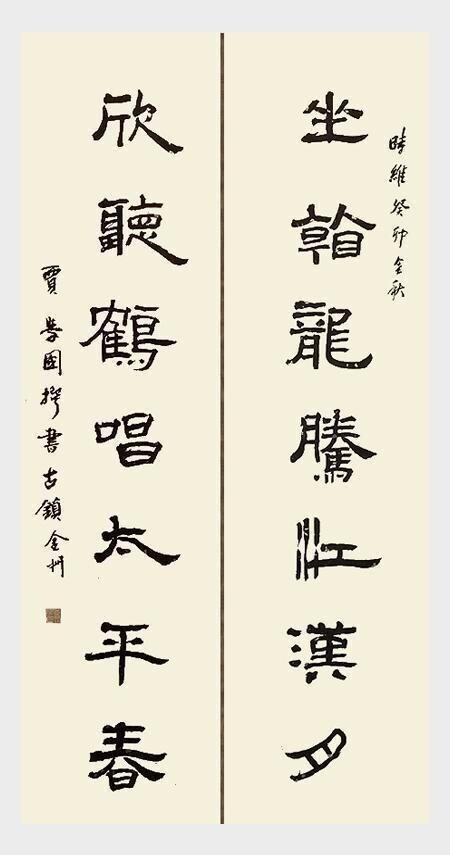 時維癸卯金秋
坐看龍騰江漢月
欣聽鶴唱太平春
賈國撰書古鎮金州